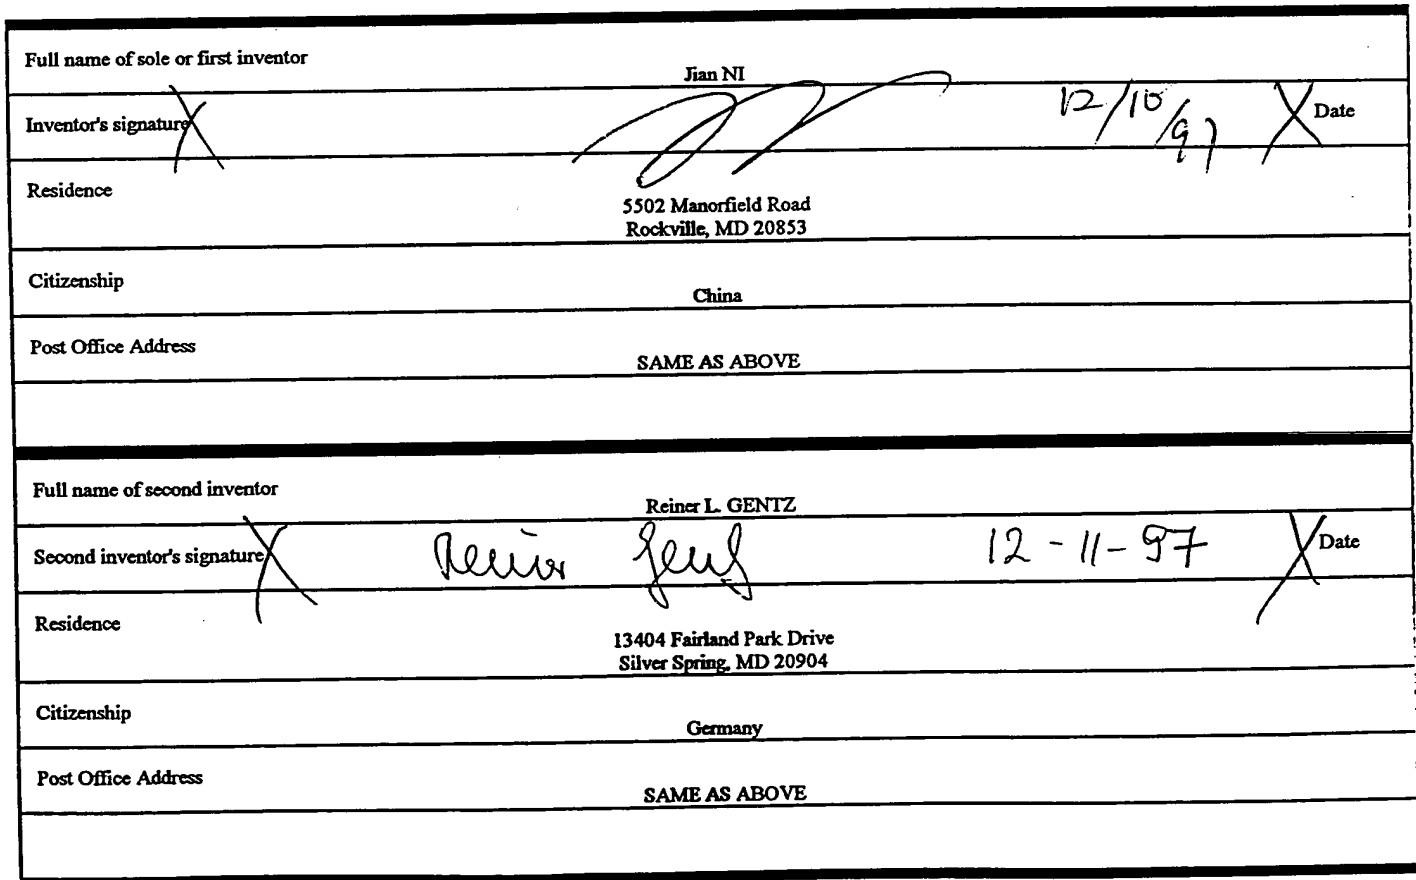 Full name of sole or first inventor
Jian NI
Inventor's signature X 12/10/97 X Date
Residence
5502 Manorfield Road
Rockville, MD 20853
Citizenship
China
Post Office Address
SAME AS ABOVE
Full name of second inventor
Reiner L. GENTZ
Second inventor's signature X Reiner Gentz 12-11-97 X Date
Residence
13404 Fairland Park Drive
Silver Spring, MD 20904
Citizenship
Germany
Post Office Address
SAME AS ABOVE